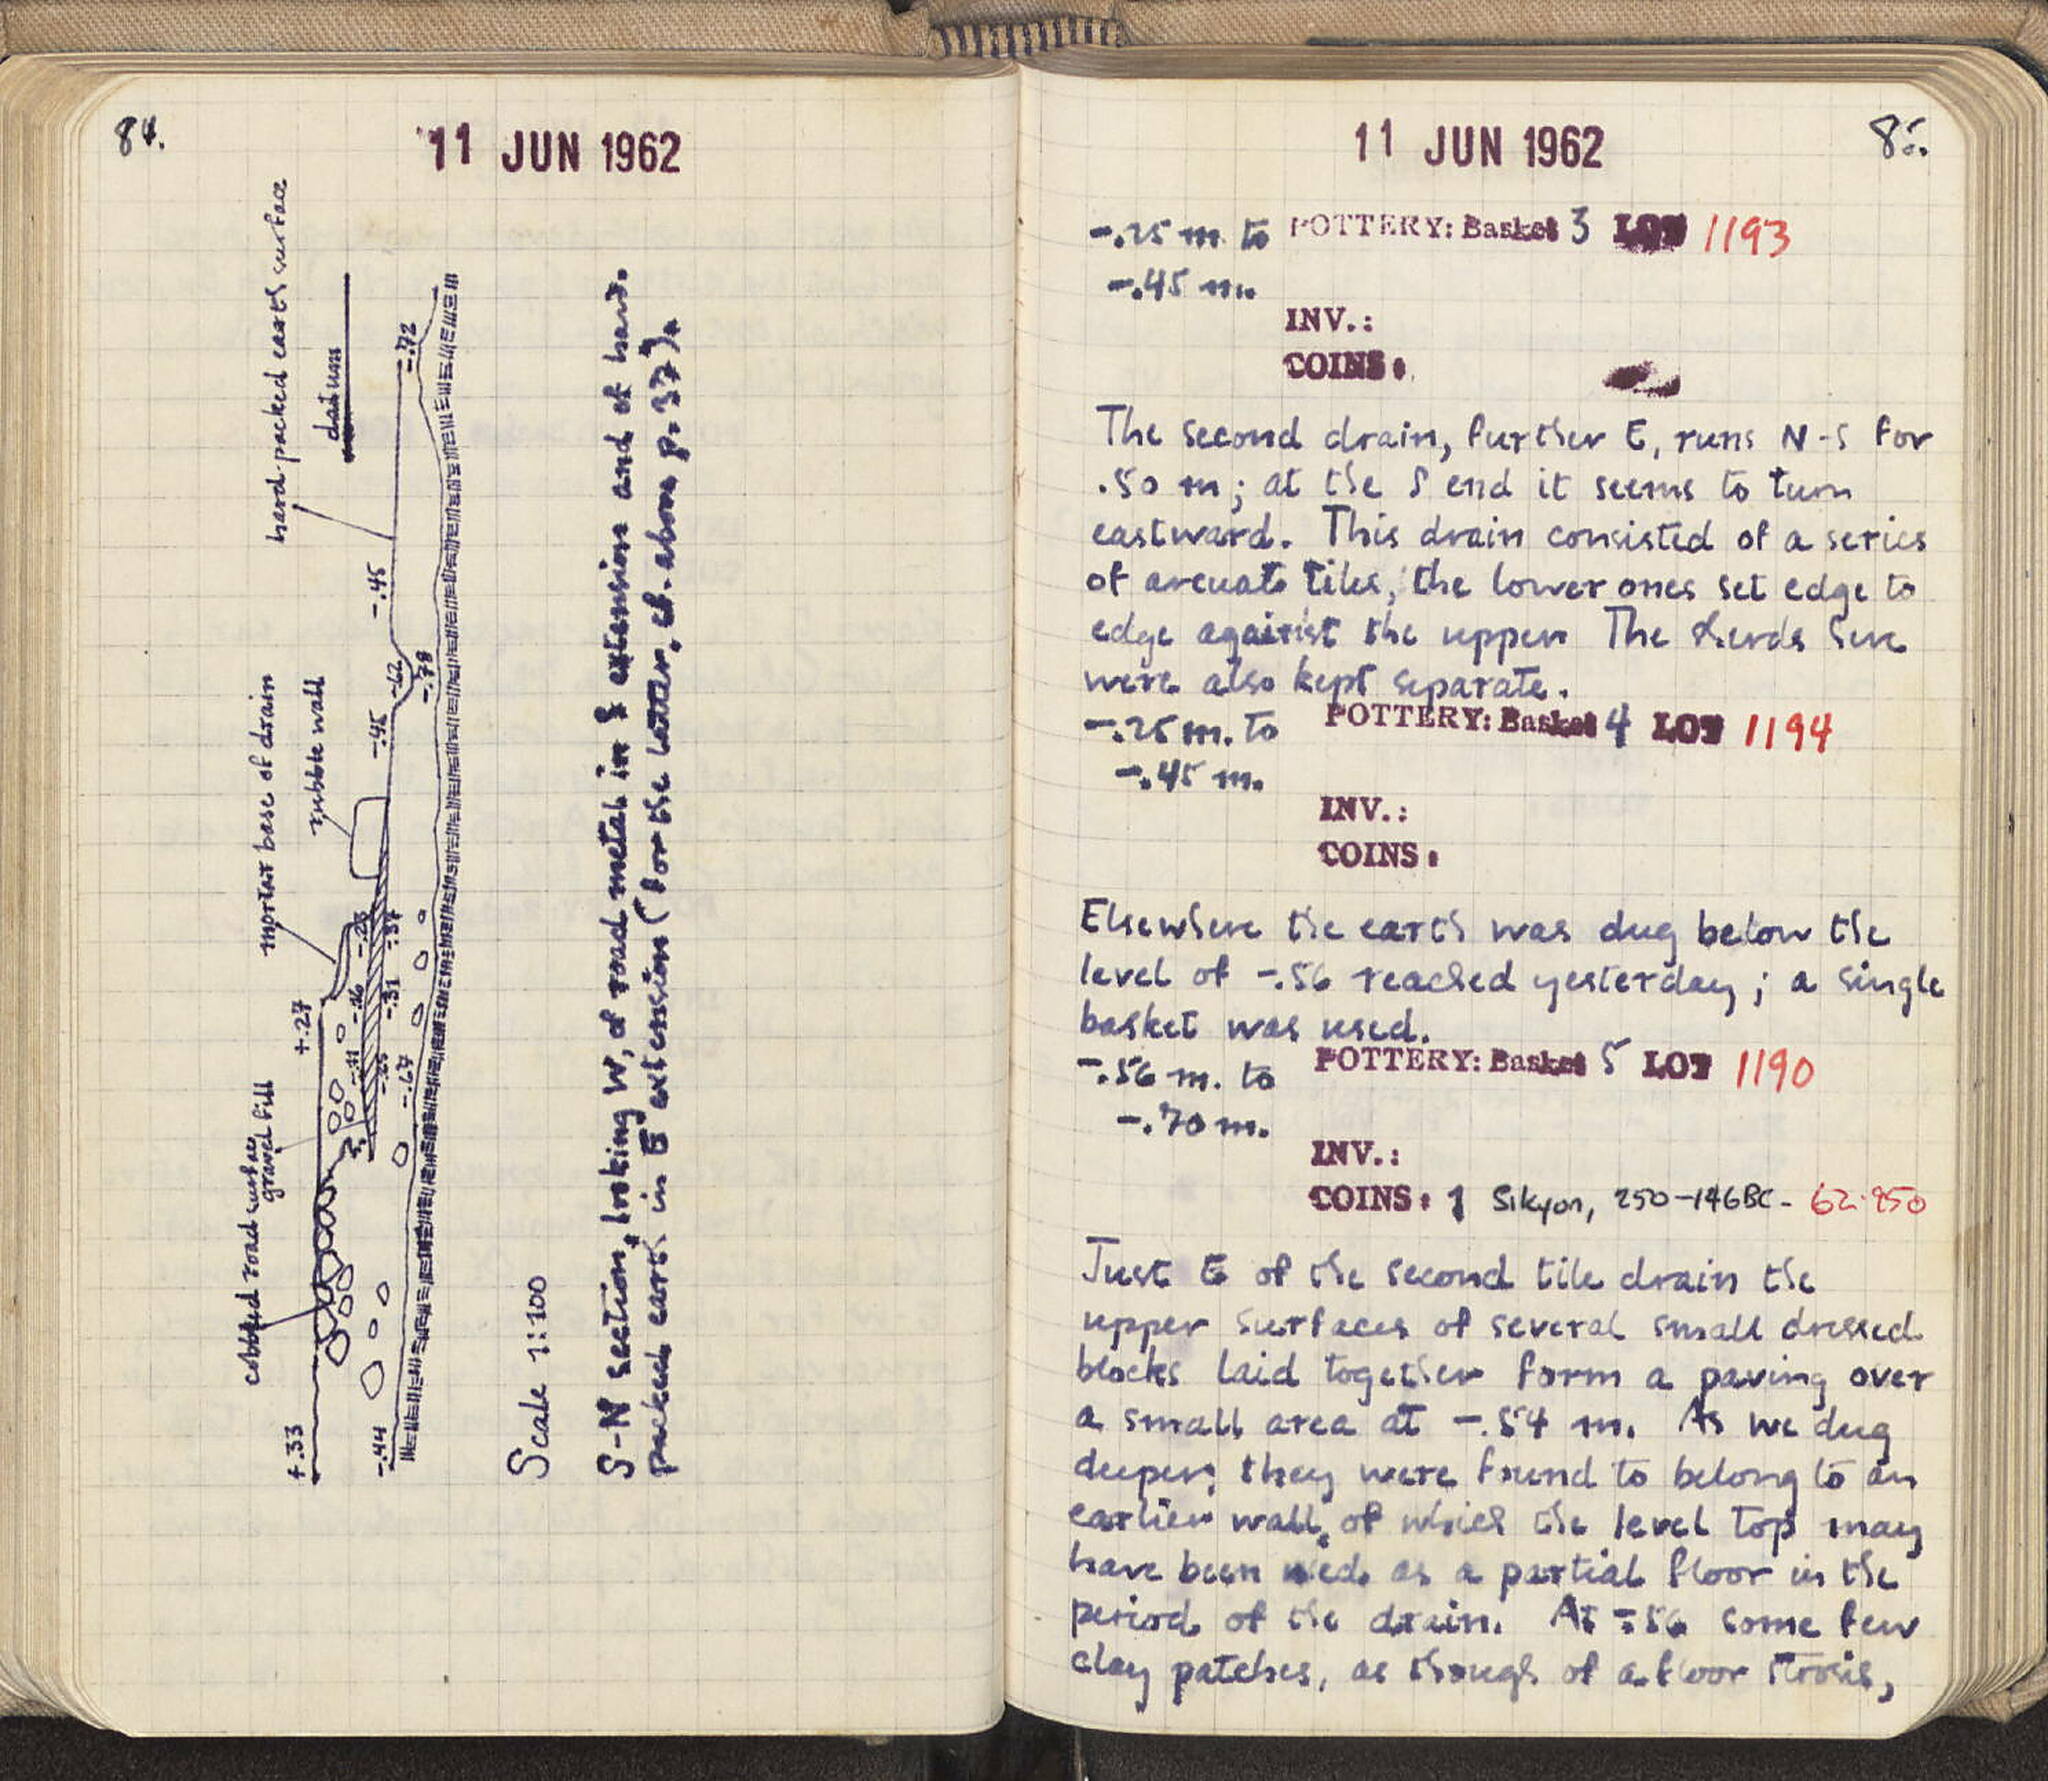 84.
11 JUN 1962
hard-packed earth surface
datum
-.72
-.45
-.62
-.78
-.45
mortar base of drain
rubble wall
-.26
-.37
-.16
-.31
+.27
-.11
-.25
-.67
cobbled road surface
gravel fill
+.33
-.44
Scale 1:100
S-N section, looking W, of road metal in S extension and of hard-
packed earth in E extension (for the latter, cf. above p. 37).
11 JUN 1962
85.
-.25 m. to POTTERY: Basket 3 LOT 1193
-.45 m.
INV.:
COINS:
The second drain, further E, runs N-S for
.50 m; at the S end it seems to turn
eastward. This drain consisted of a series
of arcuate tiles, the lower ones set edge to
edge against the upper. The sherds here
were also kept separate.
-.25 m. to POTTERY: Basket 4 LOT 1194
-.45 m.
INV.:
COINS:
Elsewhere the earth was dug below the
level of -.56 reached yesterday; a single
basket was used.
-.56 m. to POTTERY: Basket 5 LOT 1190
-.70 m.
INV.:
COINS: 1 Sikyon, 250-146BC- 62-850
Just E of the second tile drain the
upper surfaces of several small dressed
blocks laid together form a paving over
a small area at -.54 m. As we dug
deeper, they were found to belong to an
earlier wall, of which the level top may
have been used as a partial floor in the
period of the drain. At -.56 some few
clay patches, as though of a floor strosis,